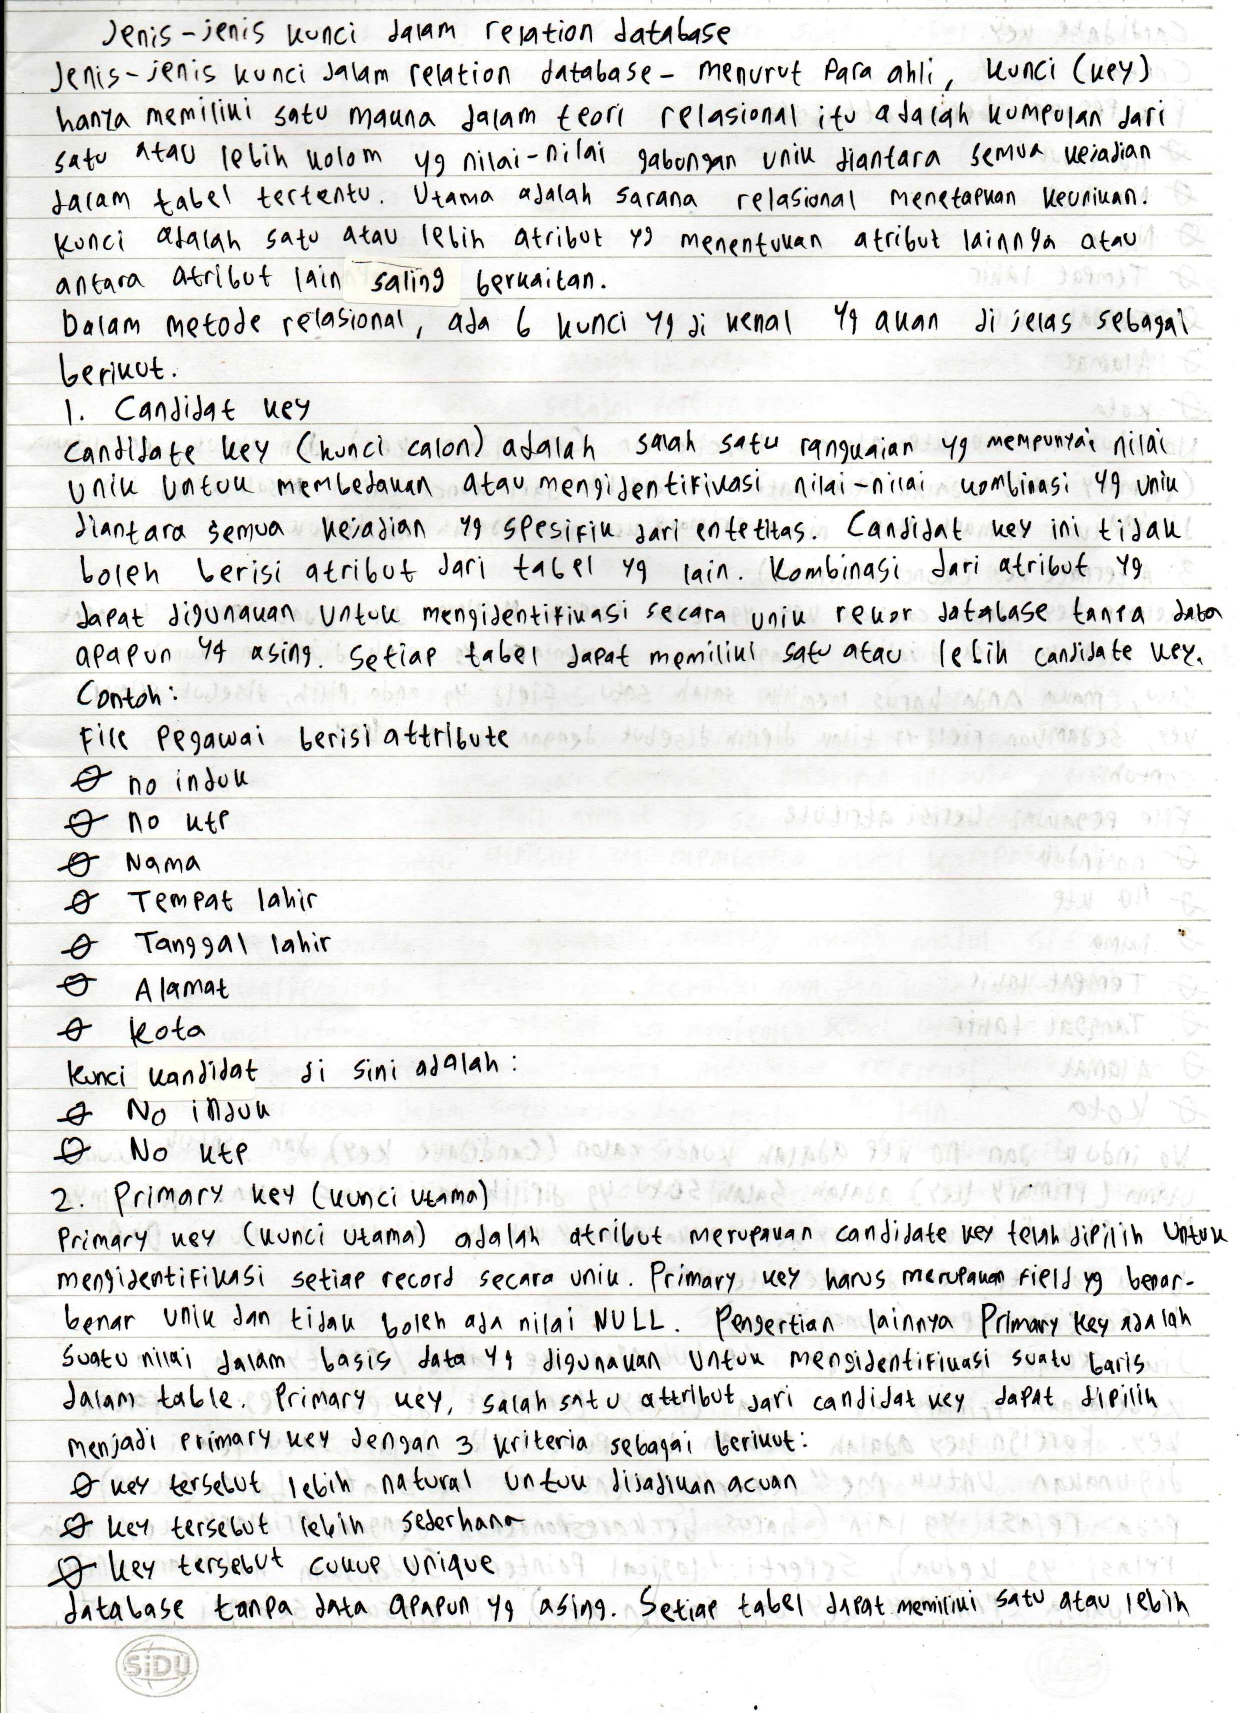 Jenis-jenis kunci dalam relation database
Jenis-jenis kunci dalam relation database - menurut Para ahli, kunci (key)
hanya memiliki satu makna dalam teori relasional itu adalah kumpulan dari
satu atau lebih kolom yg nilai-nilai gabungan unik diantara semua kejadian
dalam tabel tertentu. Utama adalah sarana relasional menetapkan keunikan.
Kunci adalah satu atau lebih atribut yg menentukan atribut lainnya atau
antara atribut lain saling berkaitan.
Dalam metode relasional, ada 6 kunci yg di kenal yg akan di jelas sebagai
berikut.
1. Candidat key
Candidate key (kunci calon) adalah salah satu rangkaian yg mempunyai nilai
unik untuk membedakan atau mengidentifikasi nilai-nilai kombinasi yg unik
diantara semua kejadian yg spesifik dari entetitas. Candidat key ini tidak
boleh berisi atribut dari tabel yg lain. Kombinasi dari atribut yg
dapat digunakan untuk mengidentifikasi secara unik rekor database tanpa data
apapun yg asing. Setiap tabel dapat memiliki satu atau lebih candidate key.
Contoh:
File Pegawai berisi attribute
no induk
no ktp
Nama
Tempat lahir
Tanggal lahir
Alamat
Kota
Kunci kandidat di sini adalah:
No induk
No ktp
2. Primary key (kunci utama)
Primary key (kunci utama) adalah atribut merupakan candidate key telah dipilih untuk
mengidentifikasi setiap record secara unik. Primary key harus merupakan field yg benar-
benar unik dan tidak boleh ada nilai NULL. Pengertian lainnya Primary key adalah
suatu nilai dalam basis data yg digunakan untuk mengidentifikasi suatu baris
dalam table. Primary key, salah satu attribut dari candidat key dapat dipilih
menjadi primary key dengan 3 kriteria sebagai berikut:
key tersebut lebih natural untuk dijadikan acuan
key tersebut lebih sederhana
key tersebut cukup unique
database tanpa data apapun yg asing. Setiap tabel dapat memiliki satu atau lebih
SiDU